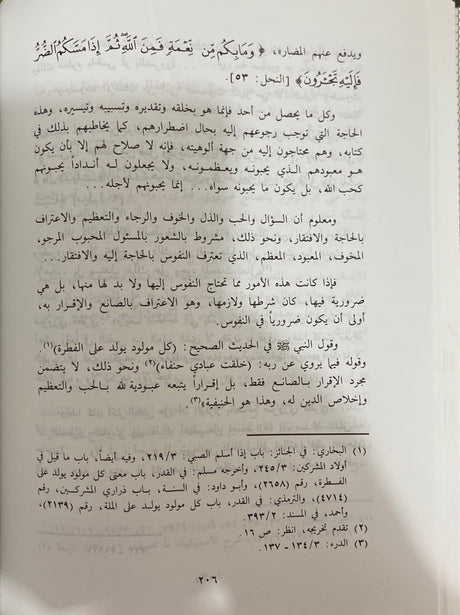 ويدفع عنهم المضار»، ﴿ وَمَا بِكُم مِّن نِّعْمَةٍ فَمِنَ اللَّهِ ثُمَّ إِذَا مَسَّكُمُ الضُّرُّ
فَإِلَيْهِ تَجْأَرُونَ ﴾ [النحل: ٥٣].
وكل ما يحصل من أحد فإنما هو بخلقه وتقديره وتسبيبه وتيسيره، وهذه
الحاجة التي توجب رجوعهم إليه بحال اضطرارهم، كما يخاطبهم بذلك في
كتابه، وهم محتاجون إليه من جهة ألوهيته، فإنه لا صلاح لهم إلا بأن يكون
هو معبودهم الذي يحبونه ويعظمونه، ولا يجعلون له أنداداً يحبونهم
كحب الله، بل يكون ما يحبونه سواه... إنما يحبونهم لأجله...
ومعلوم أن السؤال والحب والذل والخوف والرجاء والتعظيم والاعتراف
بالحاجة والافتقار، ونحو ذلك، مشروط بالشعور بالمسئول المحبوب المرجو،
المخوف، المعبود، المعظم، الذي تعترف النفوس بالحاجة إليه والافتقار...
فإذا كانت هذه الأمور مما تحتاج النفوس إليها ولا بد لها منها، بل هي
ضرورية فيها، كان شرطها ولازمها، وهو الاعتراف بالصانع والإقرار به،
أولى أن يكون ضرورياً في النفوس.
وقول النبي ﷺ في الحديث الصحيح: (كل مولود يولد على الفطرة)(١).
وقوله فيما يروي عن ربه: (خلقت عبادي حنفاء)(٢) ونحو ذلك، لا يتضمن
مجرد الإقرار بالصانع فقط، بل إقراراً يتبعه عبودية لله بالحب والتعظيم
وإخلاص الدين له، وهذا هو الحنيفية»(٣)
(١) البخاري: في الجنائز: باب إذا أسلم الصبي: ٢١٩/٣، وفيه أيضاً، باب ما قيل في
أولاد المشركين: ٢٤٥/٣، وأخرجه مسلم: في القدر، باب معنى كل مولود يولد على
الفطرة، رقم (٢٦٥٨)، وأبو داود: في السنة، باب ذراري المشركين، رقم
(٤٧١٤)، والترمذي: في القدر، باب كل مولود يولد على الملة، رقم (٢١٣٩)،
وأحمد، في المسند: ٣٩٣/٢.
(٢) تقدم تخريجه، انظر: ص ١٦.
(٣) الدرء: ١٣٤/٣ – ١٣٧.
٢٠٦